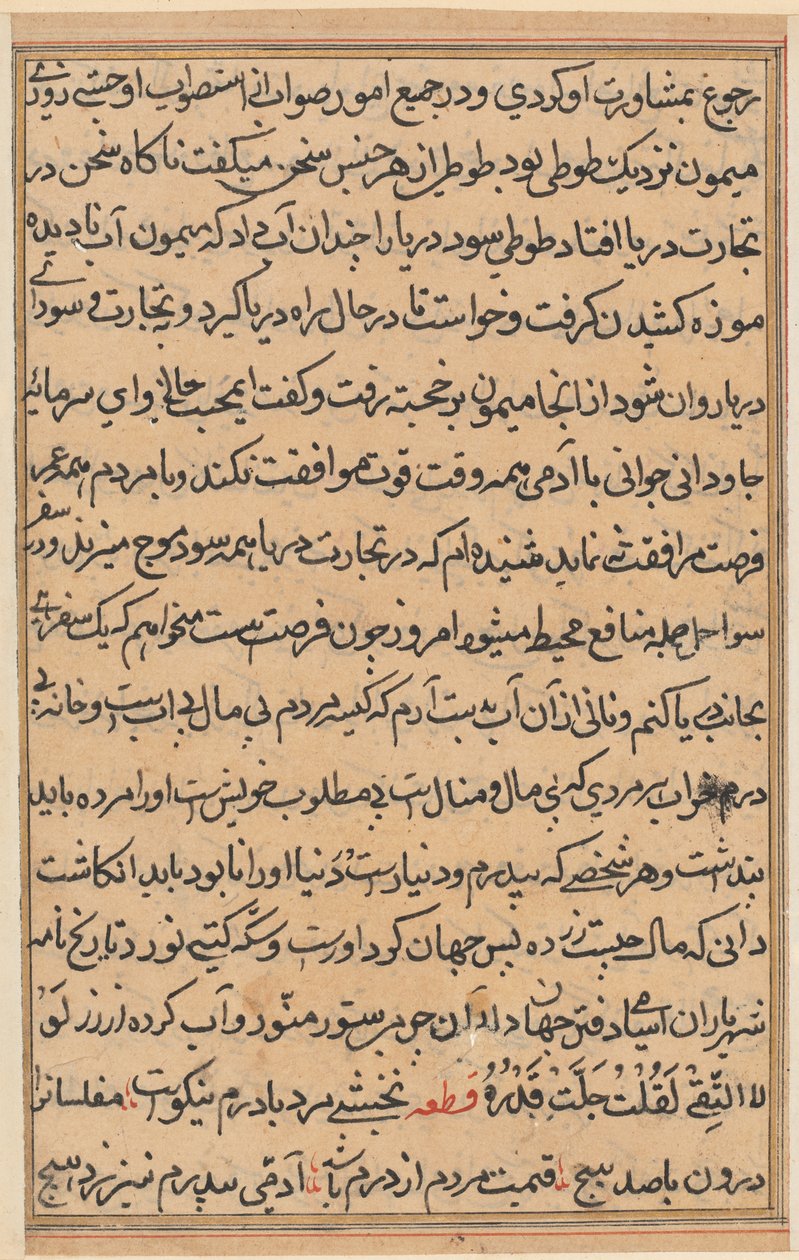 رجوع بمشاورت او کردی و در جمیع امور صواب از استصواب او جستی روزی
میمون نزدیک طوطی بود طوطی از هر جنس سخن میکفت ناکاه سخن در
تجارت دریا افتاد طوطی سود دریا را چندان آب داد که میمون آب نادیده
موزه کشیدن کرفت و خواست تا در حال راه دریا کیرد و بتجارت و سودای
دریا روان شود از انجا میمون بر خجسته رفت و کفت ای وای سرمایهٔ
جاودانی جوانی با آدمی همه وقت قوت موافقت نکند و با مردم همه عمر
فرصت مرافقت نه نماید شنیده ام که در تجارت دریا همه سود موج میزند و در سفر
سواحل جمله منافع محیط میشود امروز چون فرصت هست میخواهم که یک سفری
بجانب دریا کنم و نانی از آن آب بدست آرم که کیسه مردم بی مال بی اب است و خانه بی
درم خراب هر مردی که بی مال و منال است بی مطلوب خویش است اورا مرده باید
پنداشت و هر شخصی که بیدرم و دنیار است دنیا اورا نابود باید انکاشت
دانی که مال حیبت زر ده بیس جهان کود اورست و سکه کیتی نورد تاریخ نامه
شهریاران اسامی دفتر جهان داران جرم پرستور منور و آب کرده ازرز لَوْ
لا التُّقی لَقُلْتُ جَلَّتْ قُدْرَتُهُ قطعه نخشبی مرد با درم نیکوست مفلسانرا
درون باصد هیج قیمت مردم از درم باشد آدمی بیدرم نیرزد هیج